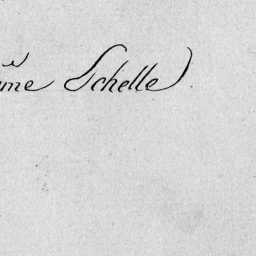 me Schelle)